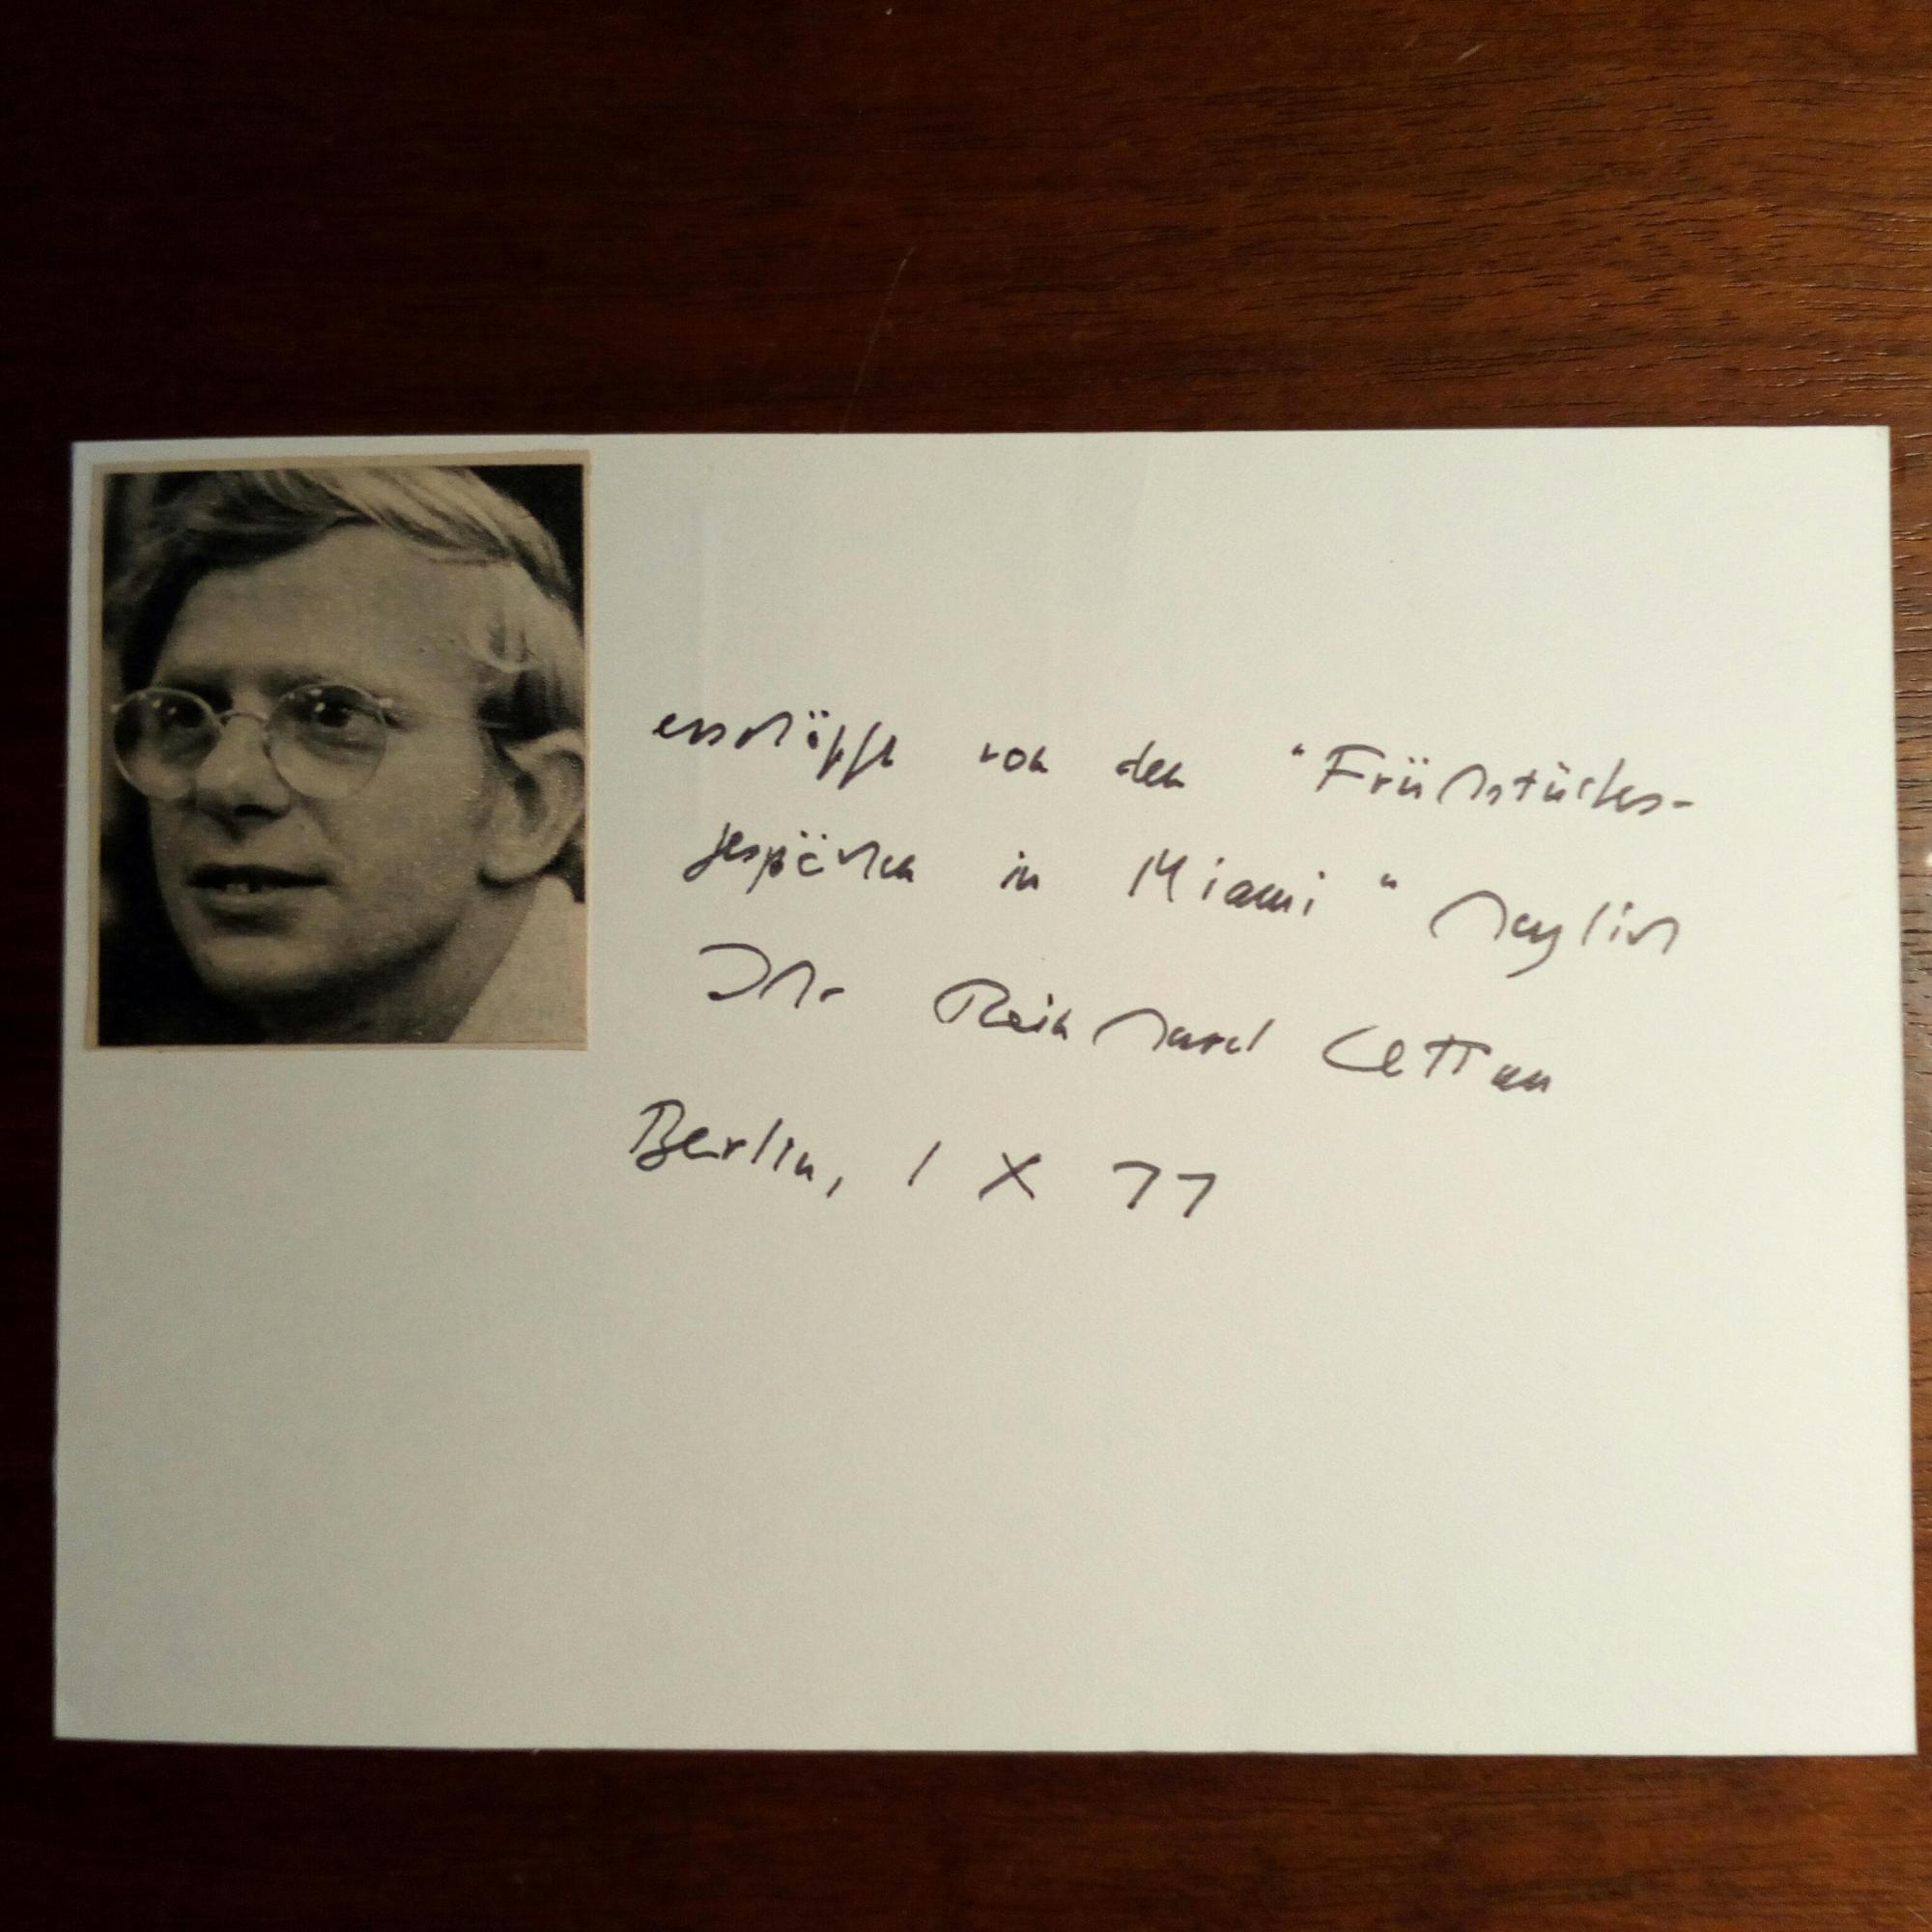 erschöpft von den "Frühstücks-
gespächen in Miami" herzlich
Ihr Reinhard Lettau
Berlin, 1 X 77